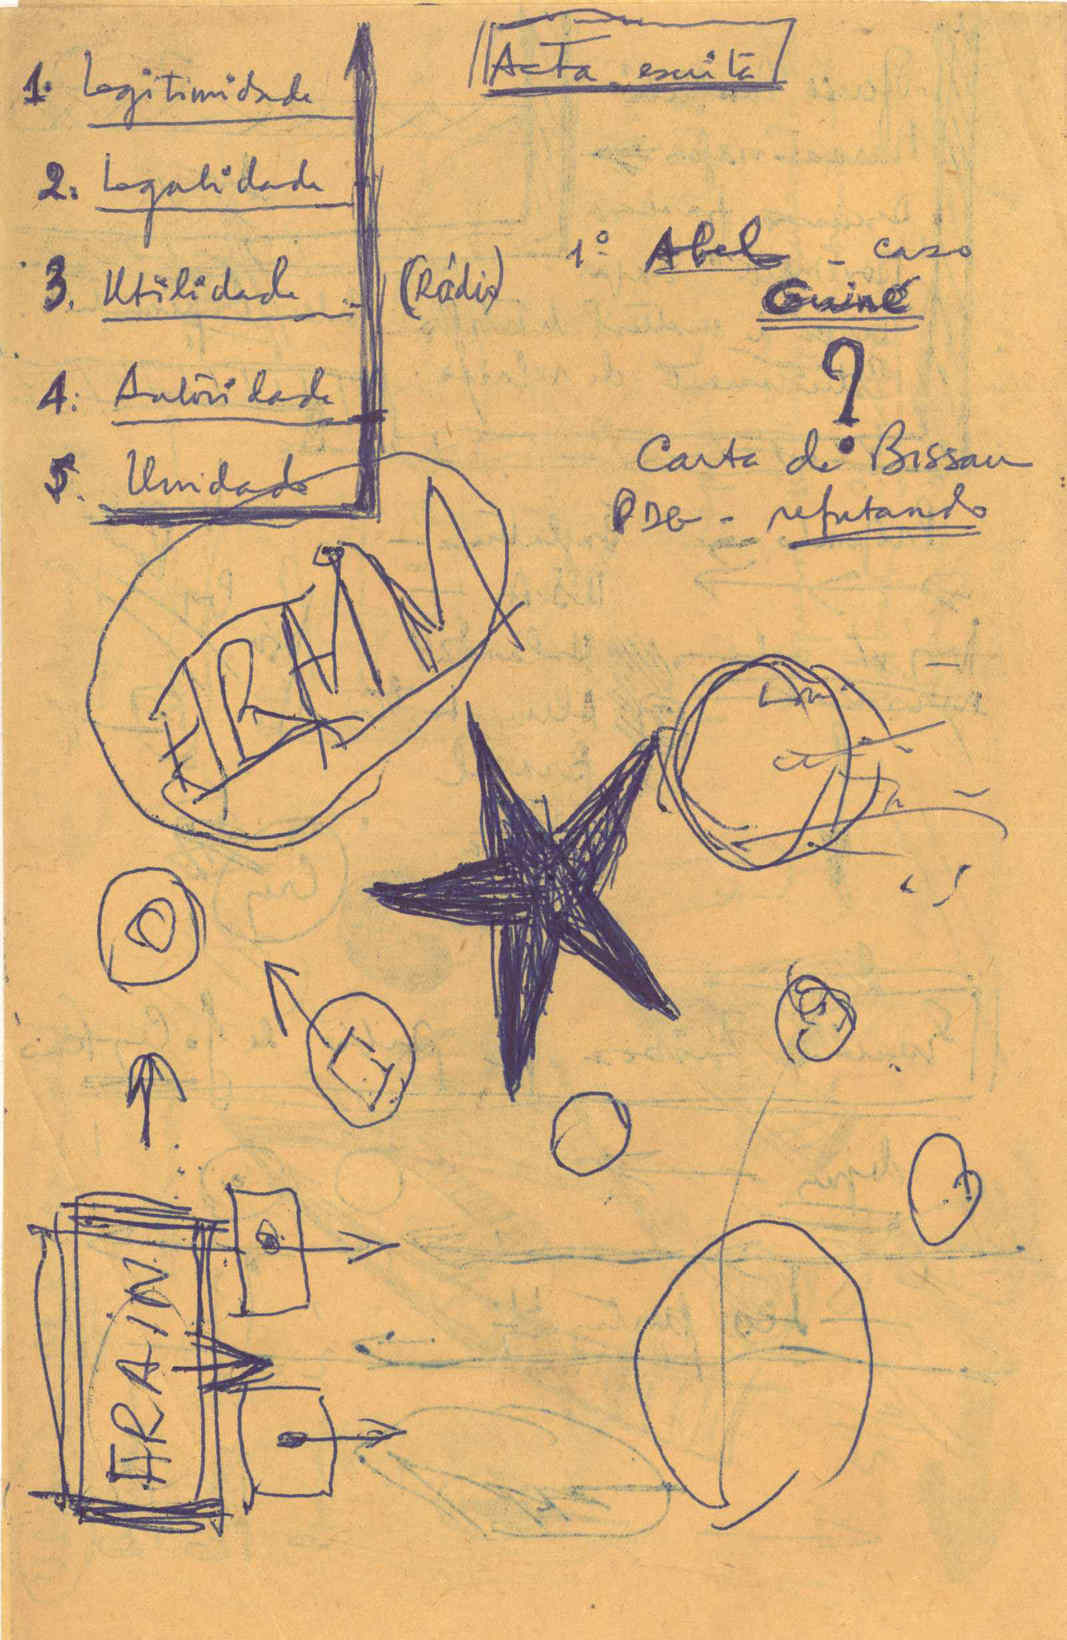 Acta escrita
1. Legitimidade
2. Legalidade
3. Utilidade (Rádio)
4. Autoridade
5. Unidade
1º Abel - caso
Guiné
?
Carta de Bissau
PDG - refutando
FRAIN